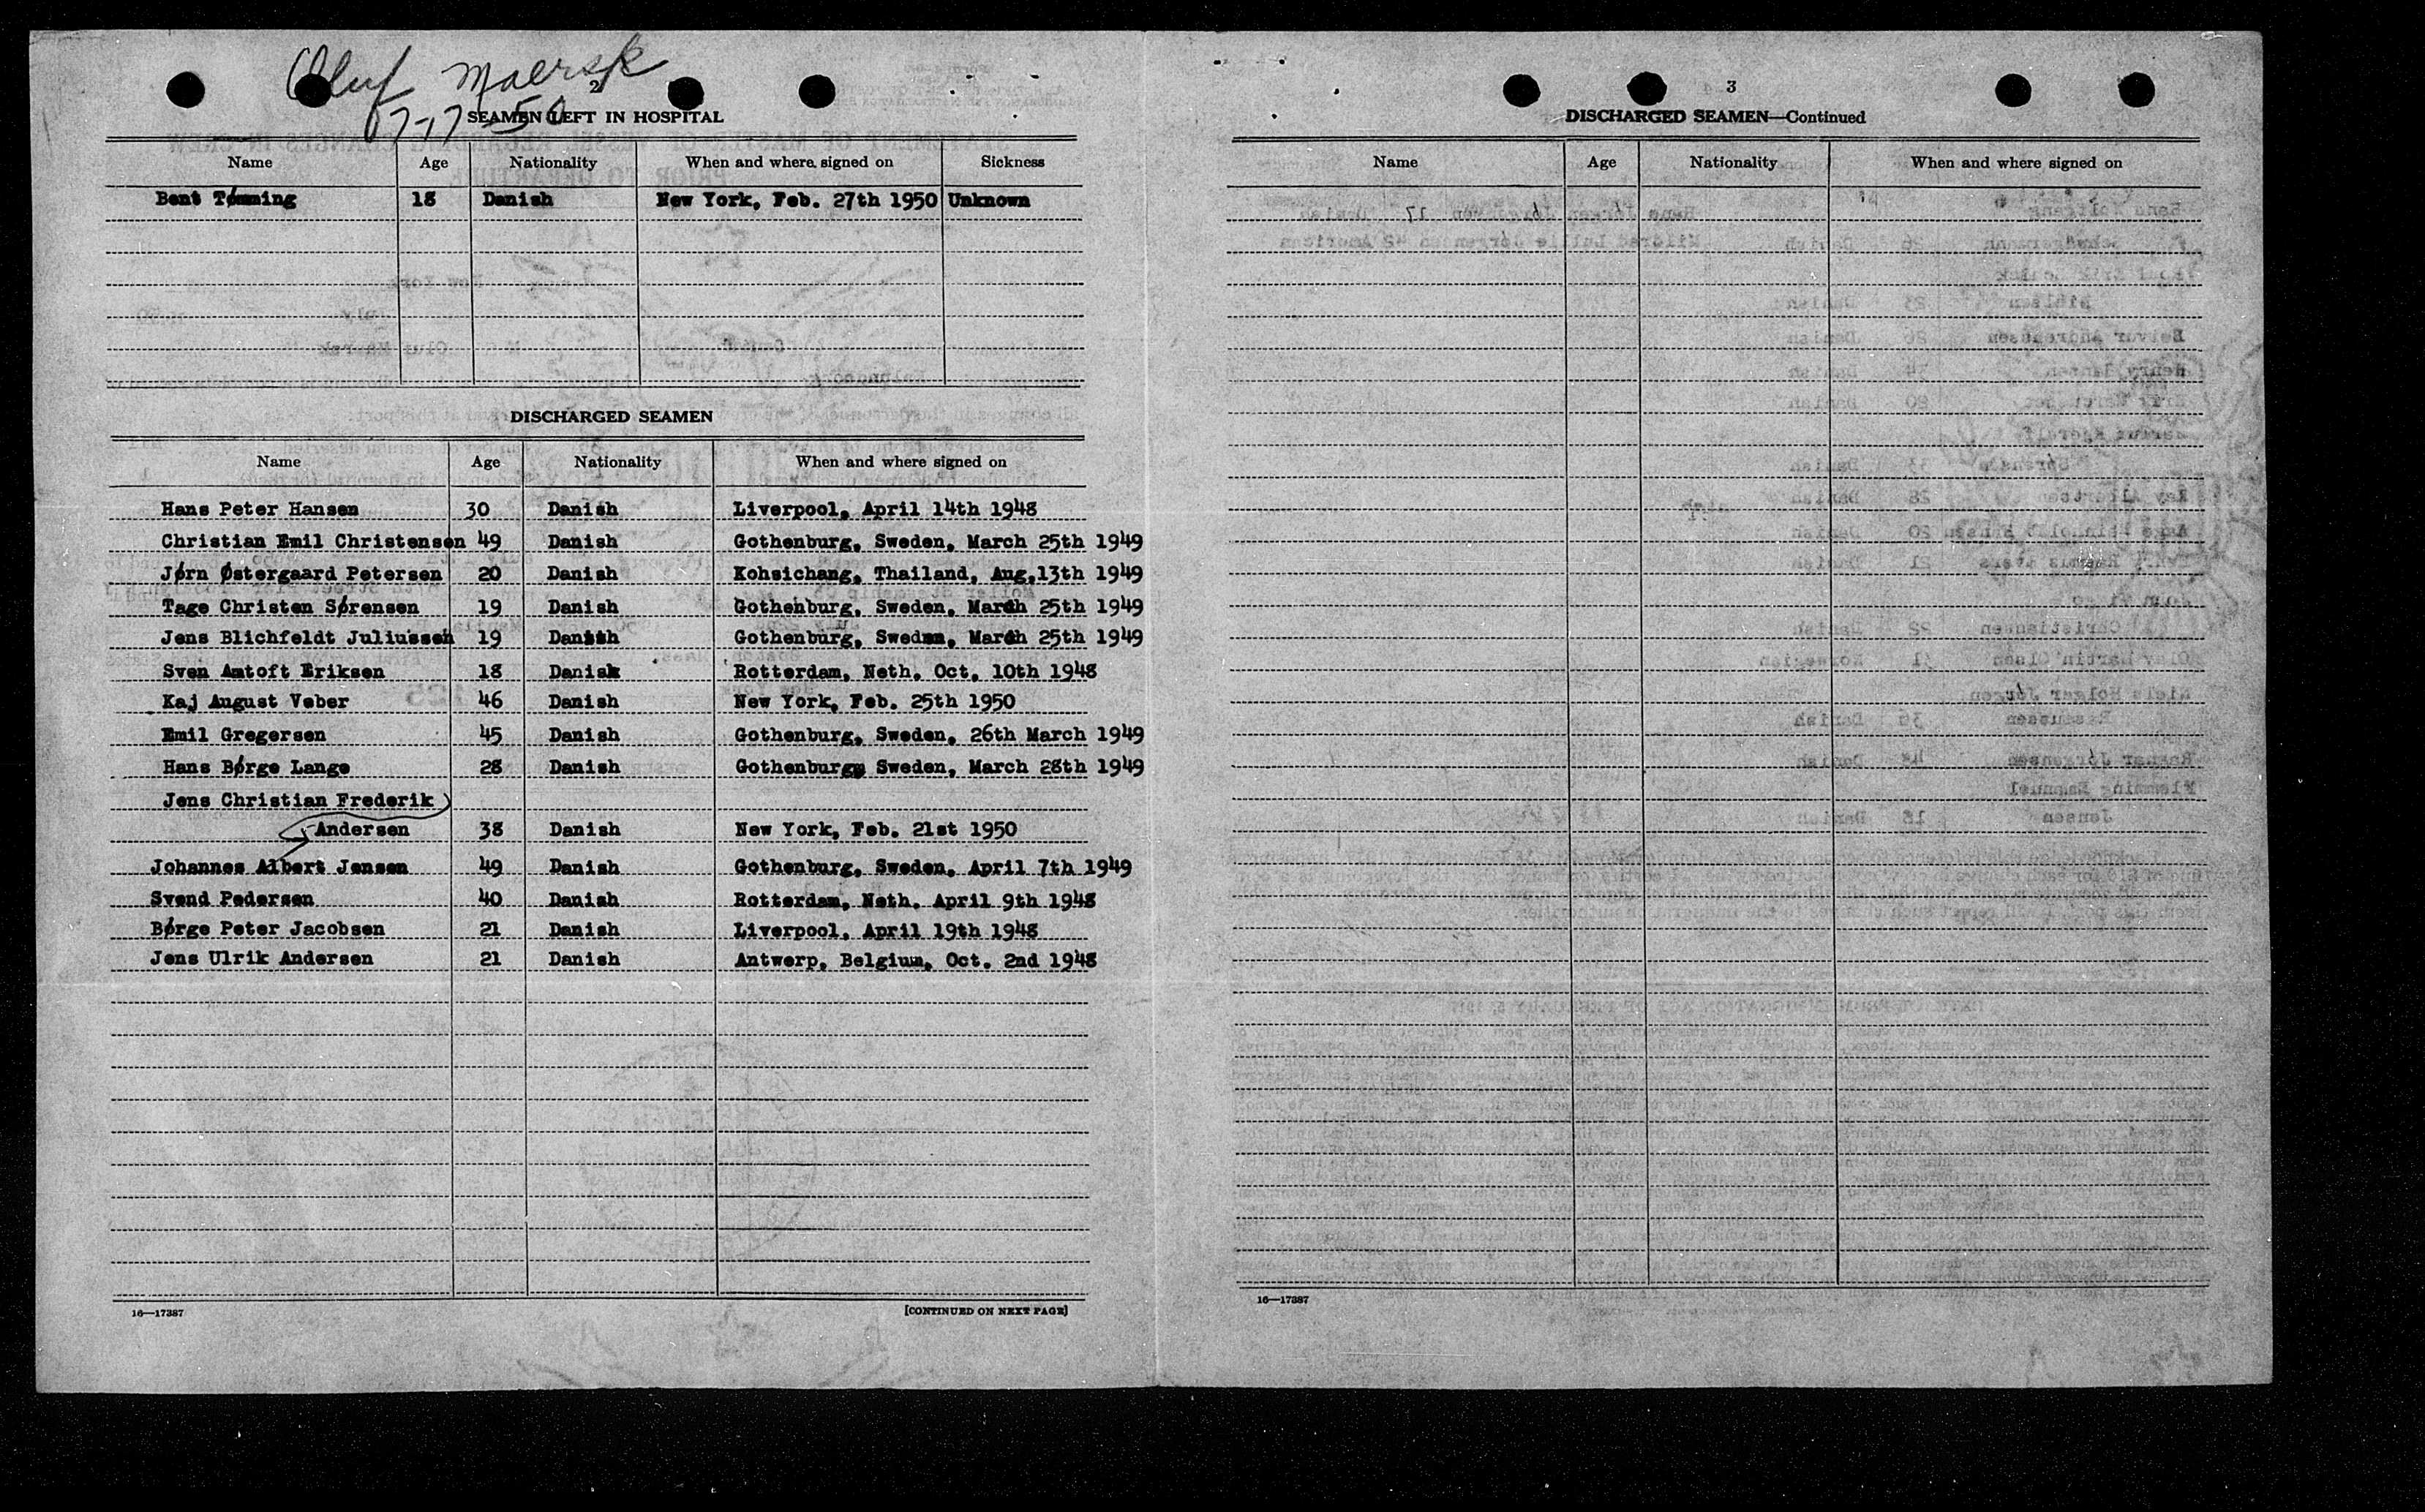 Oluf Maersk
7-17-50
2
SEAMEN LEFT IN HOSPITAL
Name Age Nationality When and where signed on Sickness
Bent Tømming 18 Danish New York, Feb. 27th 1950 Unknown
DISCHARGED SEAMEN
Name Age Nationality When and where signed on
Hans Peter Hansen 30 Danish Liverpool, April 14th 1948
Christian Emil Christensen 49 Danish Gothenburg, Sweden, March 25th 1949
Jørn Østergaard Petersen 20 Danish Kohsichang, Thailand, Aug,13th 1949
Tage Christen Sørensen 19 Danish Gothenburg, Sweden, March 25th 1949
Jens Blichfeldt Juliussen 19 Danish Gothenburg, Sweden, March 25th 1949
Sven Amtoft Eriksen 18 Danish Rotterdam, Neth. Oct. 10th 1948
Kaj August Veber 46 Danish New York, Feb. 25th 1950
Emil Gregersen 45 Danish Gothenburg, Sweden, 26th March 1949
Hans Børge Lange 28 Danish Gothenburg, Sweden, March 28th 1949
Jens Christian Frederik
Andersen 38 Danish New York, Feb. 21st 1950
Johannes Albert Jensen 49 Danish Gothenburg, Sweden, April 7th 1949
Svend Pedersen 40 Danish Rotterdam, Neth. April 9th 1948
Børge Peter Jacobsen 21 Danish Liverpool, April 19th 1948
Jens Ulrik Andersen 21 Danish Antwerp, Belgium, Oct. 2nd 1948
16—17387 [CONTINUED ON NEXT PAGE]
3
DISCHARGED SEAMEN—Continued
Name Age Nationality When and where signed on
16—17387